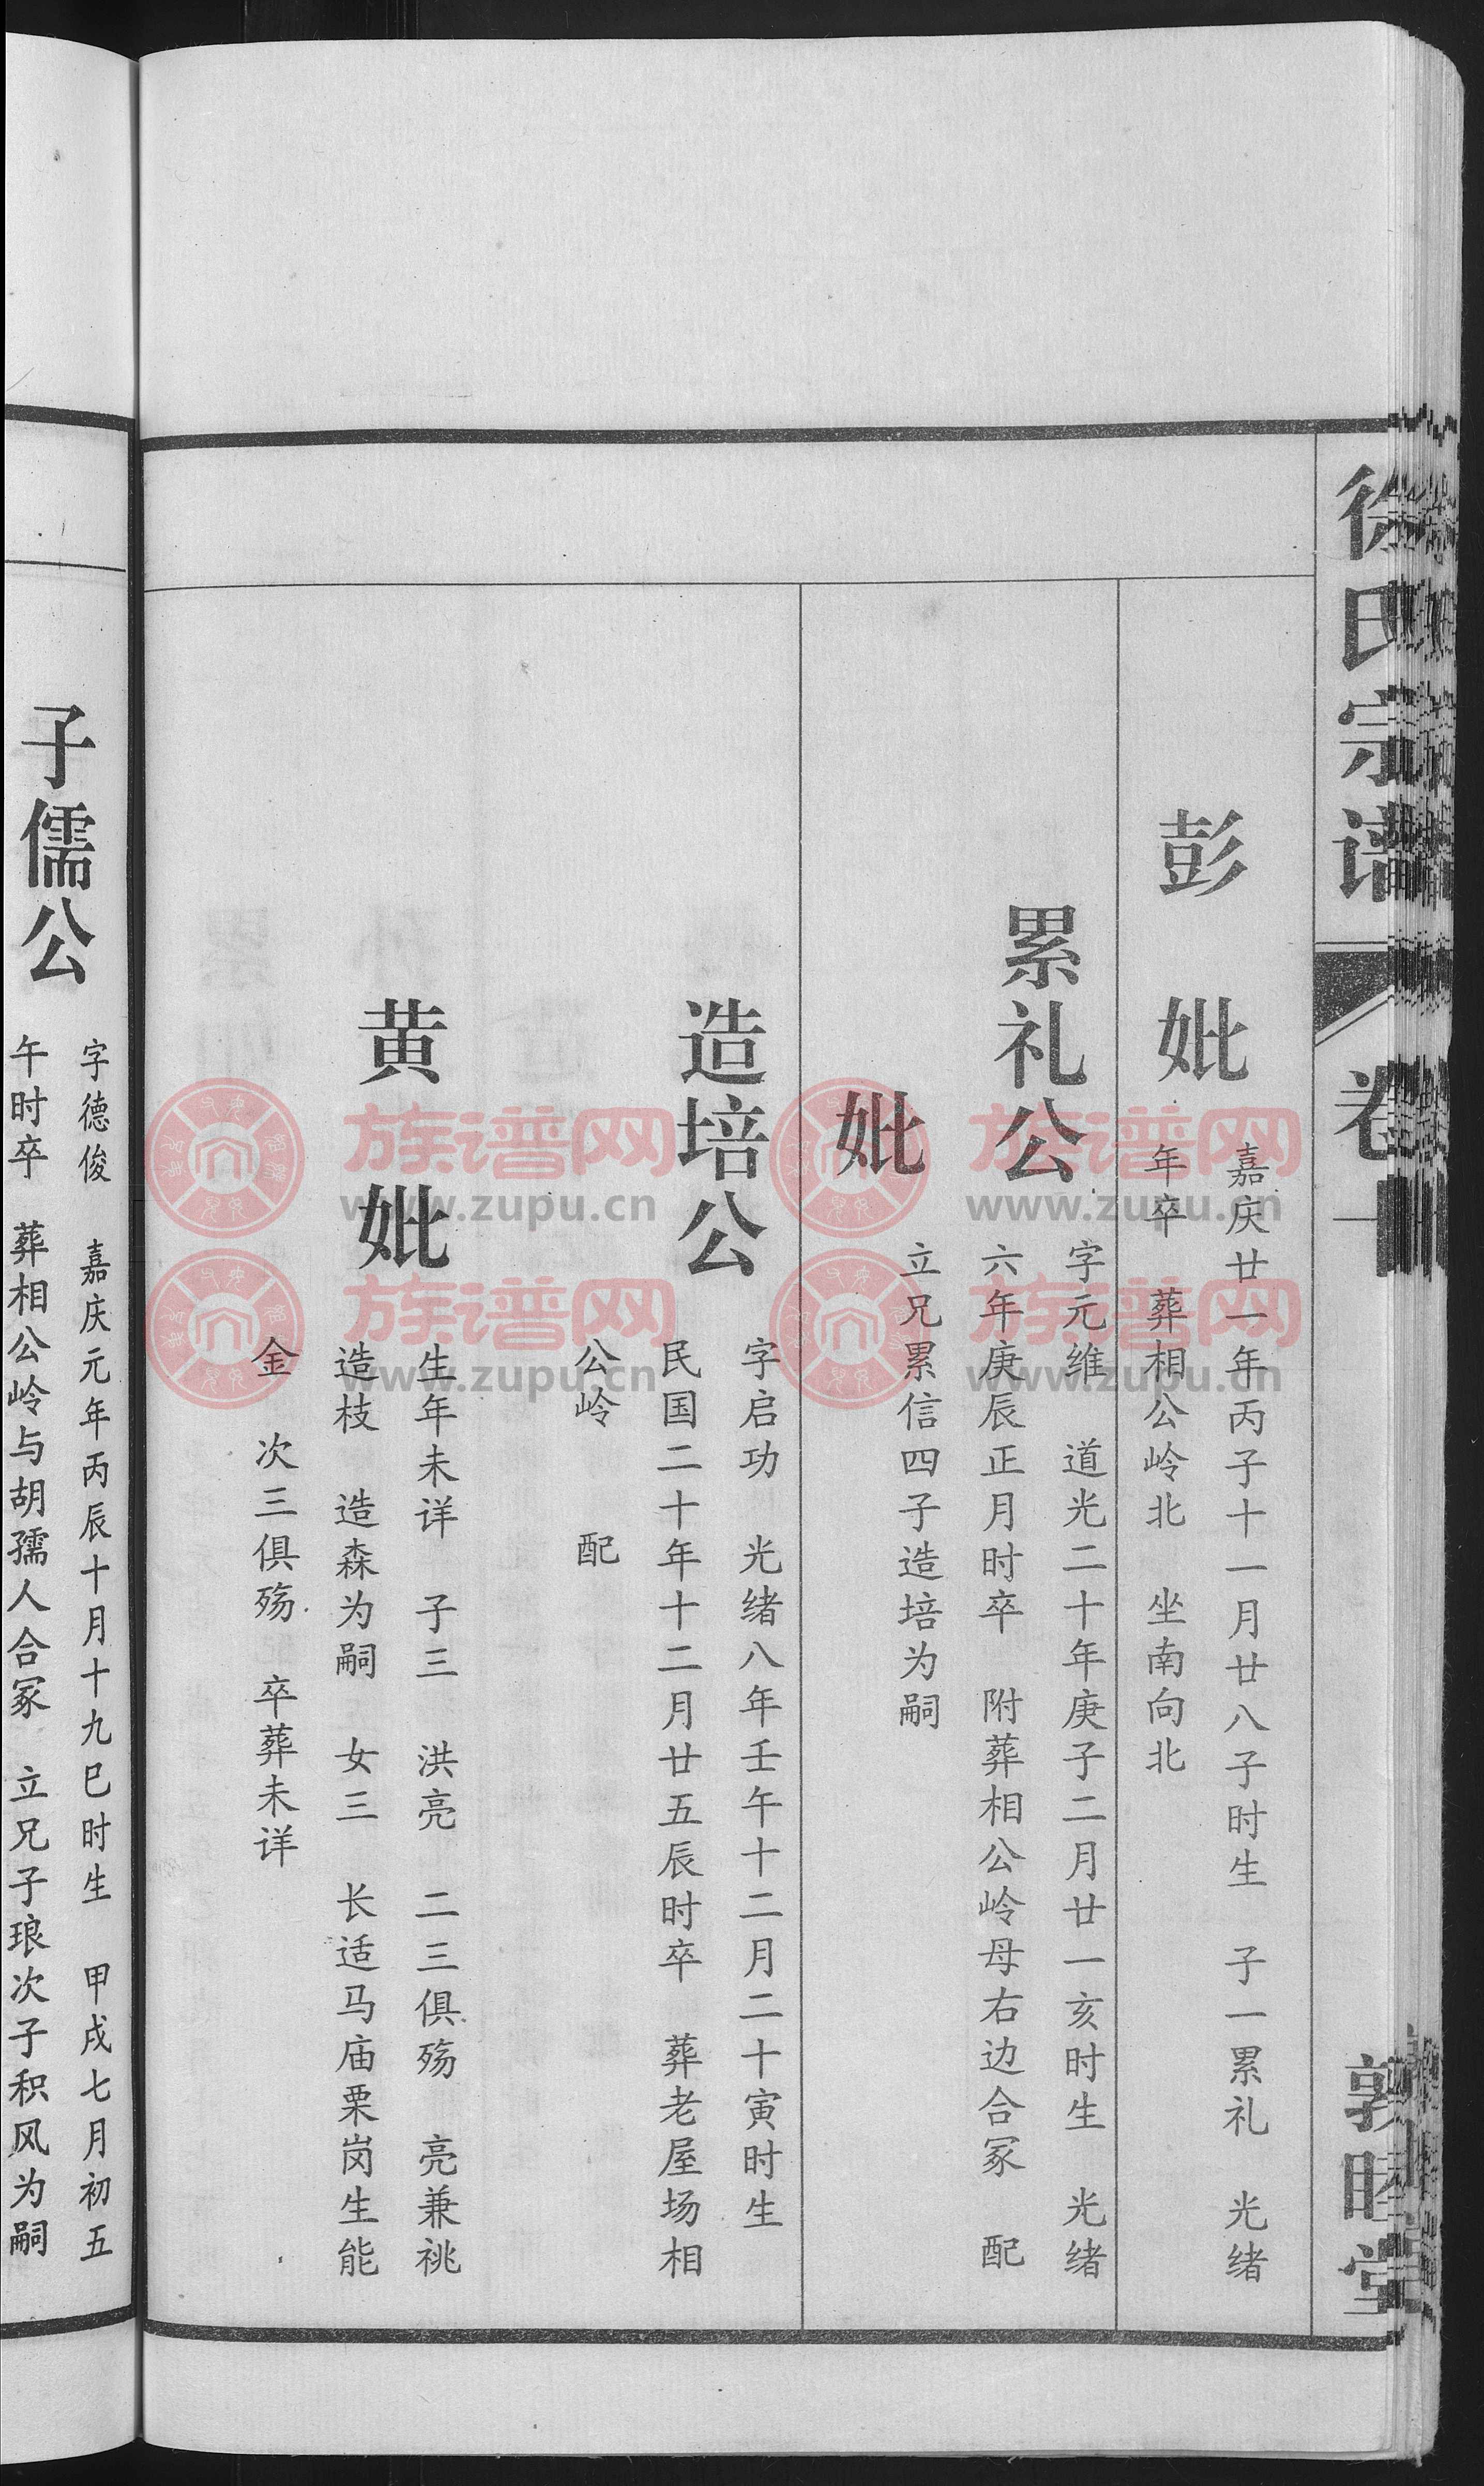 徐氏宗谱
卷一
敦睦堂
彭妣
嘉庆廿一年丙子十一月廿八子时生 子一累礼 光绪
年卒 葬相公岭北 坐南向北
累礼公
字元维 道光二十年庚子二月廿一亥时生 光绪
六年庚辰正月时卒 附葬相公岭母右边合冢 配
妣
立兄累信四子造培为嗣
造培公
字启功 光绪八年壬午十二月二十寅时生
民国二十年十二月廿五辰时卒 葬老屋场相
公岭 配
黄妣
生年未详 子三 洪亮 二三俱殇 亮兼祧
造枝 造森为嗣 女三 长适马庙栗岗生能
金 次三俱殇 卒葬未详
子儒公
字德俊 嘉庆元年丙辰十月十九巳时生 甲戌七月初五
午时卒 葬相公岭与胡孺人合冢 立兄子琅次子积风为嗣
族谱网
www.zupu.cn
族谱网
www.zupu.cn
族谱网
www.zupu.cn
族谱网
www.zupu.cn